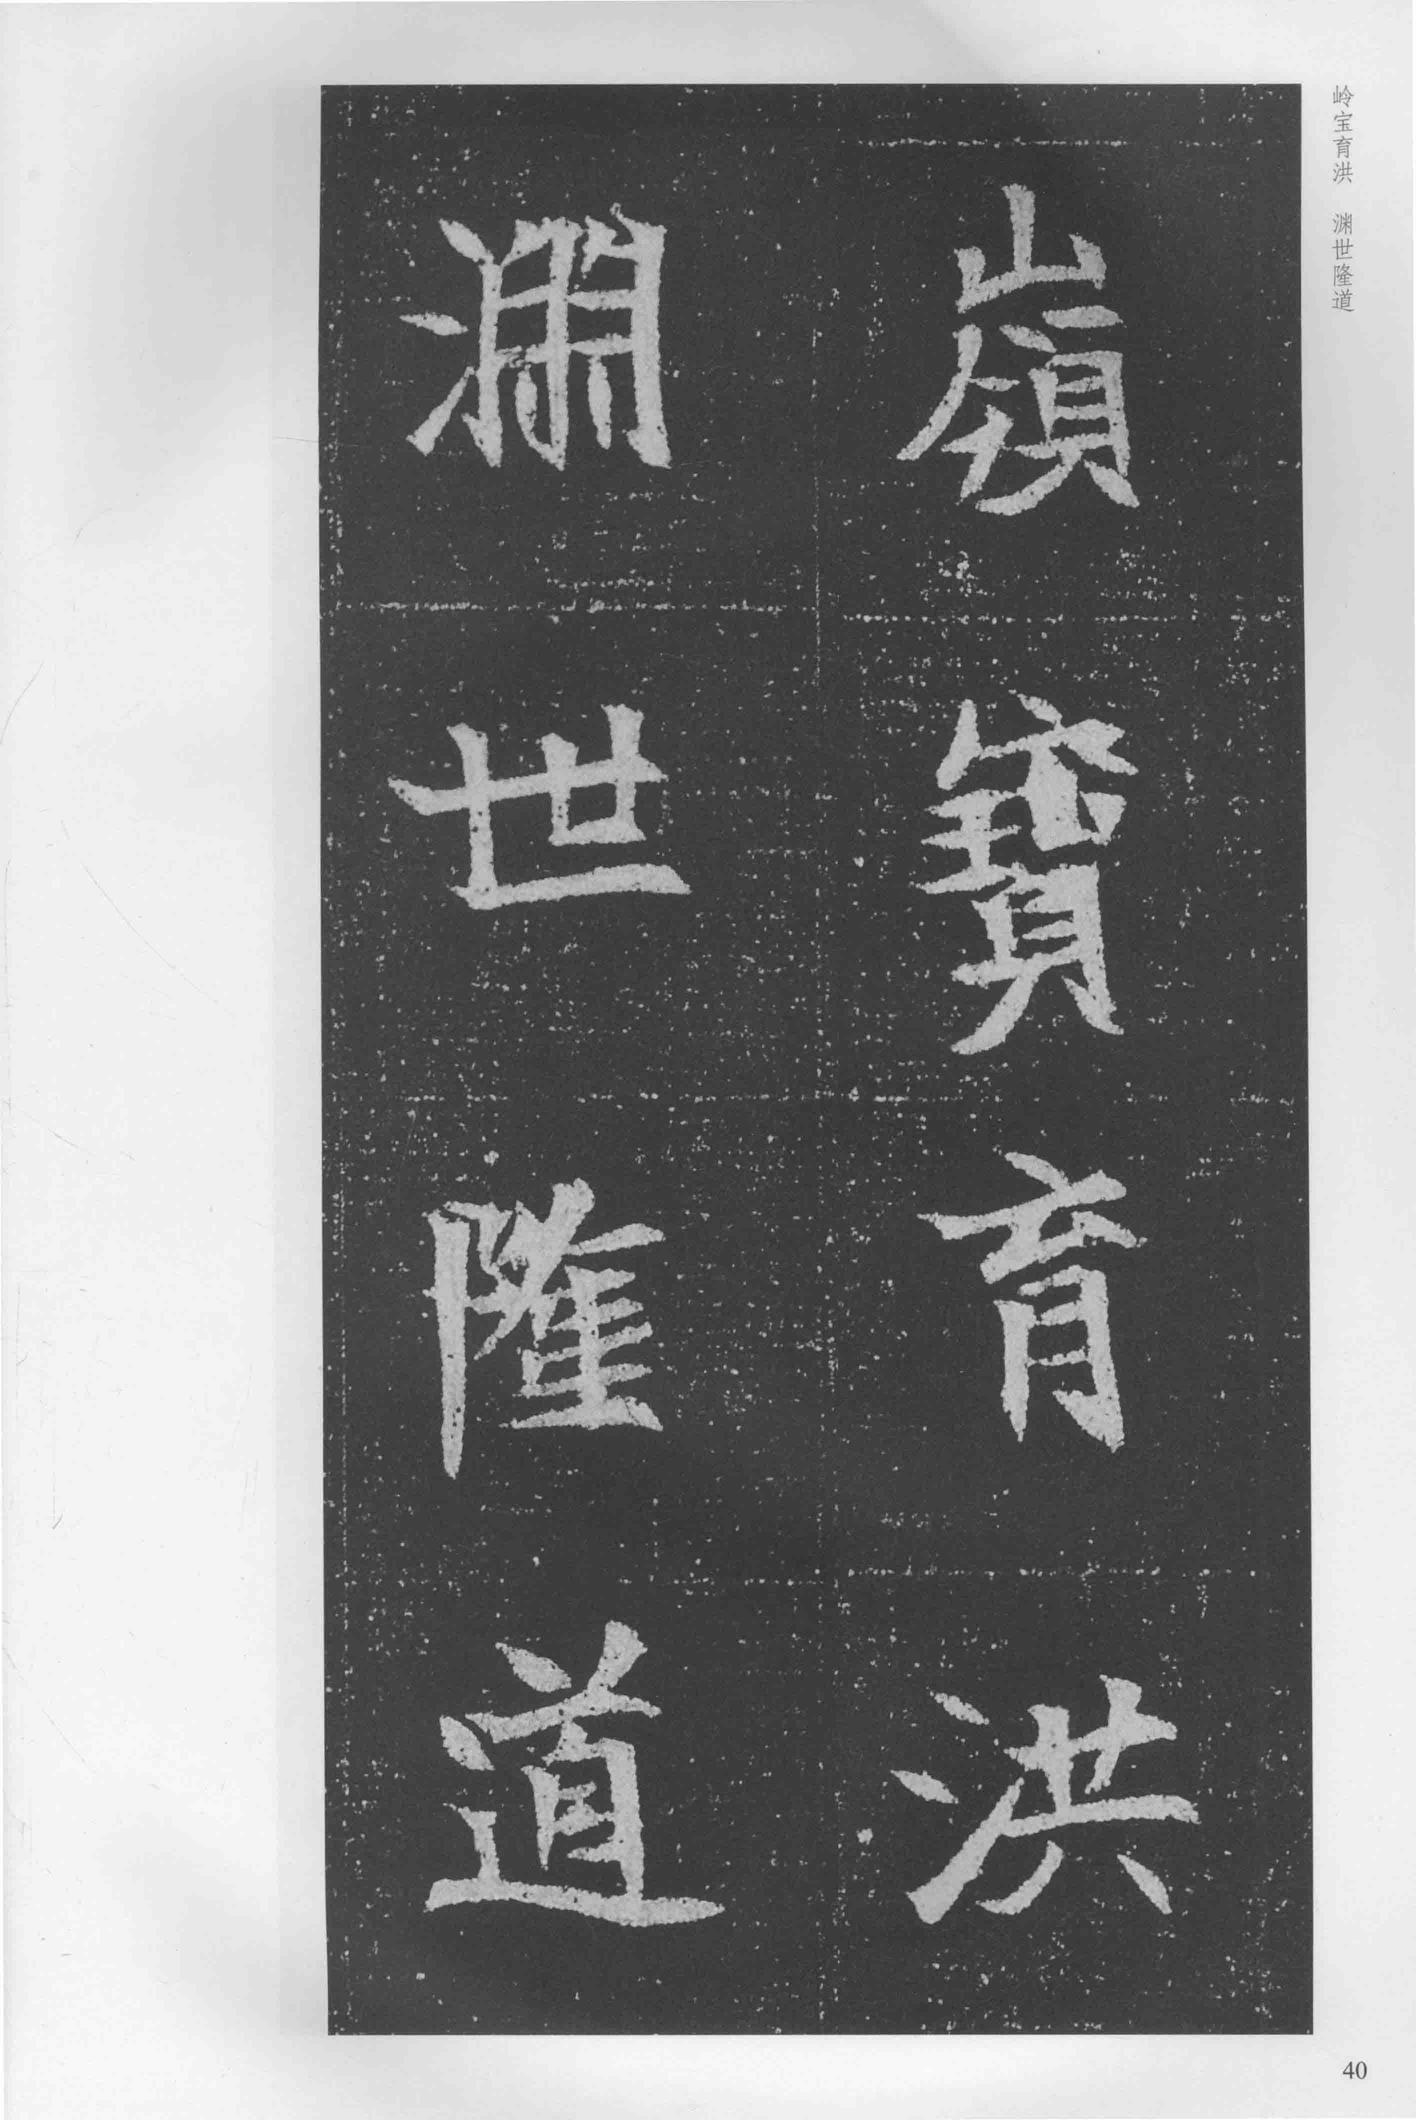 岭宝育洪　渊世隆道
嶺寶育洪
渊世隆道
40